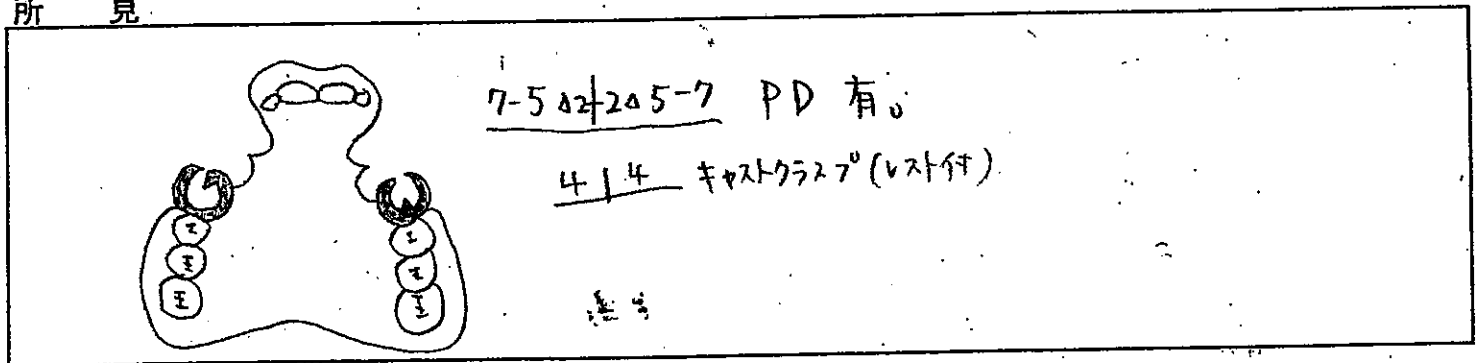 所見
7-5 Δ2+2Δ 5-7 PD 有。
4|4 キャストクラスプ(レスト付)